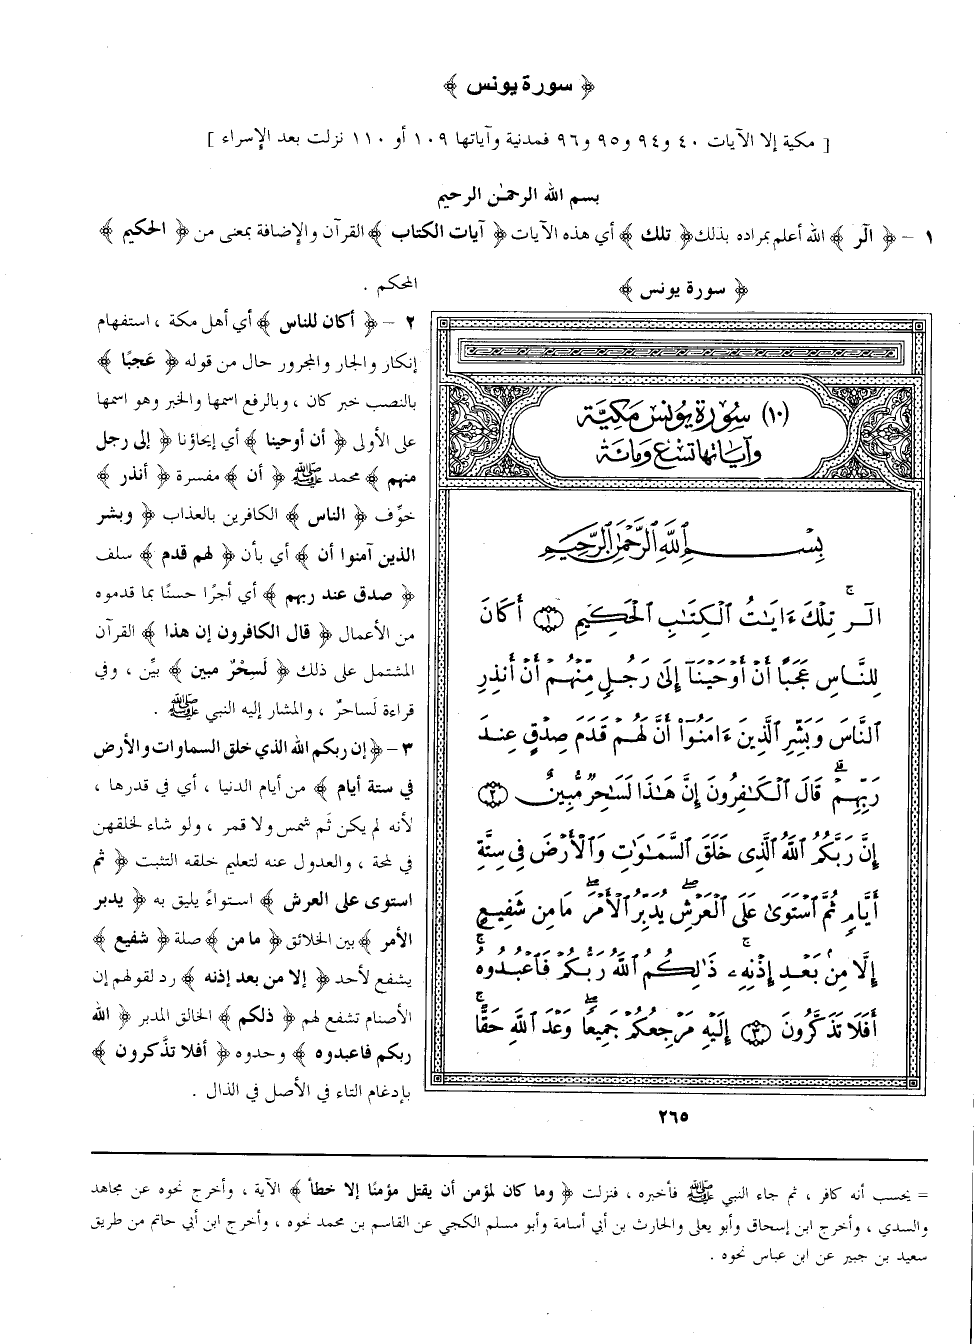 ﴿ سورة يونس ﴾
[ مكية إلا الآيات ٤٠ و٩٤ و٩٥ و٩٦ فمدنية وآياتها ١٠٩ أو ١١٠ نزلت بعد الإسراء ]
بسم الله الرحمٰن الرحيم
١ – ﴿ الٓر ﴾ الله أعلم بمراده بذلك ﴿ تلك ﴾ أي هذه الآيات ﴿ آيات الكتاب ﴾ القرآن والإضافة بمعنى من ﴿ الحكيم ﴾
المحكم .
٢ – ﴿ أكان للناس ﴾ أي أهل مكة ، استفهام
إنكار والجار والمجرور حال من قوله ﴿ عَجبًا ﴾
بالنصب خبر كان ، وبالرفع اسمها والخبر وهو اسمها
على الأولى ﴿ أن أوحينا ﴾ أي إيحاؤنا ﴿ إلى رجل
منهم ﴾ محمد ﷺ ﴿ أن ﴾ مفسرة ﴿ أنذر ﴾
خوِّف ﴿ الناس ﴾ الكافرين بالعذاب ﴿ وبشر
الذين آمنوا أن ﴾ أي بأن ﴿ لهم قدم ﴾ سلف
﴿ صدق عند ربهم ﴾ أي أجرًا حسنًا بما قدموه
من الأعمال ﴿ قال الكافرون إن هذا ﴾ القرآن
المشتمل على ذلك ﴿ لَسِحْرٌ مبين ﴾ بيِّن ، وفي
قراءة لَساحرٌ ، والمشار إليه النبي ﷺ .
٣ – ﴿ إن ربكم الله الذي خلق السماوات والأرض
في ستة أيام ﴾ من أيام الدنيا ، أي في قدرها ،
لأنه لم يكن ثَم شمس ولا قمر ، ولو شاء لخلقهن
في لمحة ، والعدول عنه لتعليم خلقه التثبت ﴿ ثم
استوى على العرش ﴾ استواءً يليق به ﴿ يدبر
الأمر ﴾ بين الخلائق ﴿ ما من ﴾ صلة ﴿ شفيع ﴾
يشفع لأحد ﴿ إلا من بعد إذنه ﴾ رد لقولهم إن
الأصنام تشفع لهم ﴿ ذلكم ﴾ الخالق المدبر ﴿ الله
ربكم فاعبدوه ﴾ وحدوه ﴿ أفلا تذَّكرون ﴾
بإدغام التاء في الأصل في الذال .
﴿ سورة يونس ﴾
(١٠) سُورَة يُونس مَكيَّة
وآيَاتها تسْع وَمائة
بِسْمِ ٱللَّهِ ٱلرَّحْمَٰنِ ٱلرَّحِيمِ
الٓرۚ تِلْكَ ءَايَٰتُ ٱلْكِتَٰبِ ٱلْحَكِيمِ ١ أَكَانَ
لِلنَّاسِ عَجَبًا أَنْ أَوْحَيْنَآ إِلَىٰ رَجُلٍ مِّنْهُمْ أَنْ أَنذِرِ
ٱلنَّاسَ وَبَشِّرِ ٱلَّذِينَ ءَامَنُوٓا۟ أَنَّ لَهُمْ قَدَمَ صِدْقٍ عِندَ
رَبِّهِمْۗ قَالَ ٱلْكَٰفِرُونَ إِنَّ هَٰذَا لَسَٰحِرٌ مُّبِينٌ ٢
إِنَّ رَبَّكُمُ ٱللَّهُ ٱلَّذِى خَلَقَ ٱلسَّمَٰوَٰتِ وَٱلْأَرْضَ فِى سِتَّةِ
أَيَّامٍ ثُمَّ ٱسْتَوَىٰ عَلَى ٱلْعَرْشِۖ يُدَبِّرُ ٱلْأَمْرَۖ مَا مِن شَفِيعٍ
إِلَّا مِنۢ بَعْدِ إِذْنِهِۦۚ ذَٰلِكُمُ ٱللَّهُ رَبُّكُمْ فَٱعْبُدُوهُۚ
أَفَلَا تَذَكَّرُونَ ٣ إِلَيْهِ مَرْجِعُكُمْ جَمِيعًاۖ وَعْدَ ٱللَّهِ حَقًّاۚ
٢٦٥
= يحسب أنه كافر ، ثم جاء النبي ﷺ فأخبره ، فنزلت ﴿ وما كان لمؤمن أن يقتل مؤمنًا إلا خطأ ﴾ الآية ، وأخرج نحوه عن مجاهد
والسدي ، وأخرج ابن إسحاق وأبو يعلى والحارث بن أبي أسامة وأبو مسلم الكجي عن القاسم بن محمد نحوه ، وأخرج ابن أبي حاتم من طريق
سعيد بن جبير عن ابن عباس نحوه .